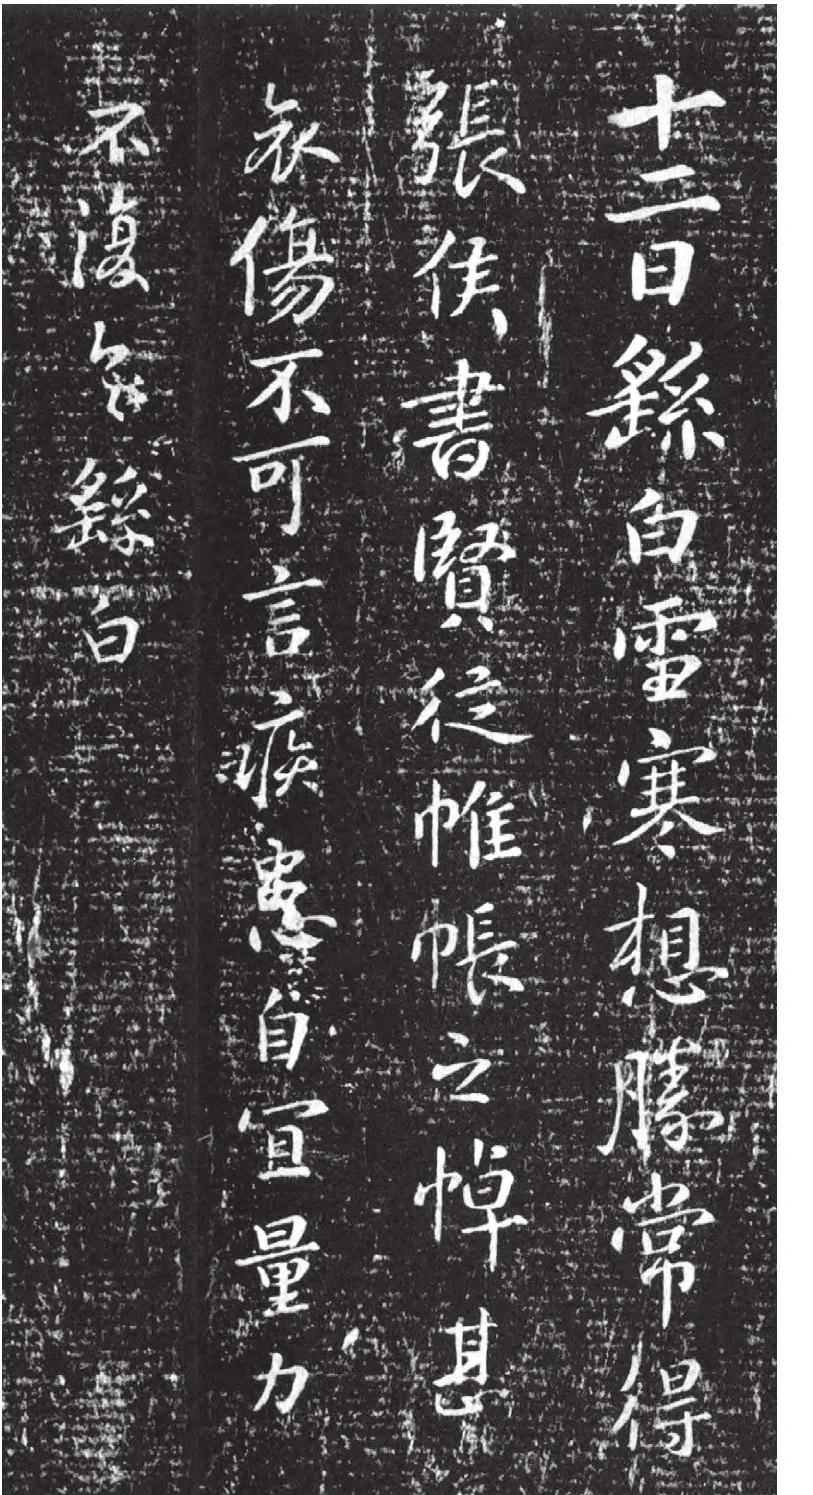 十二日繇白雪寒想勝常得
張侯書賢從帷帳之悼甚
哀傷不可言疾患自宜量力
不復具繇白